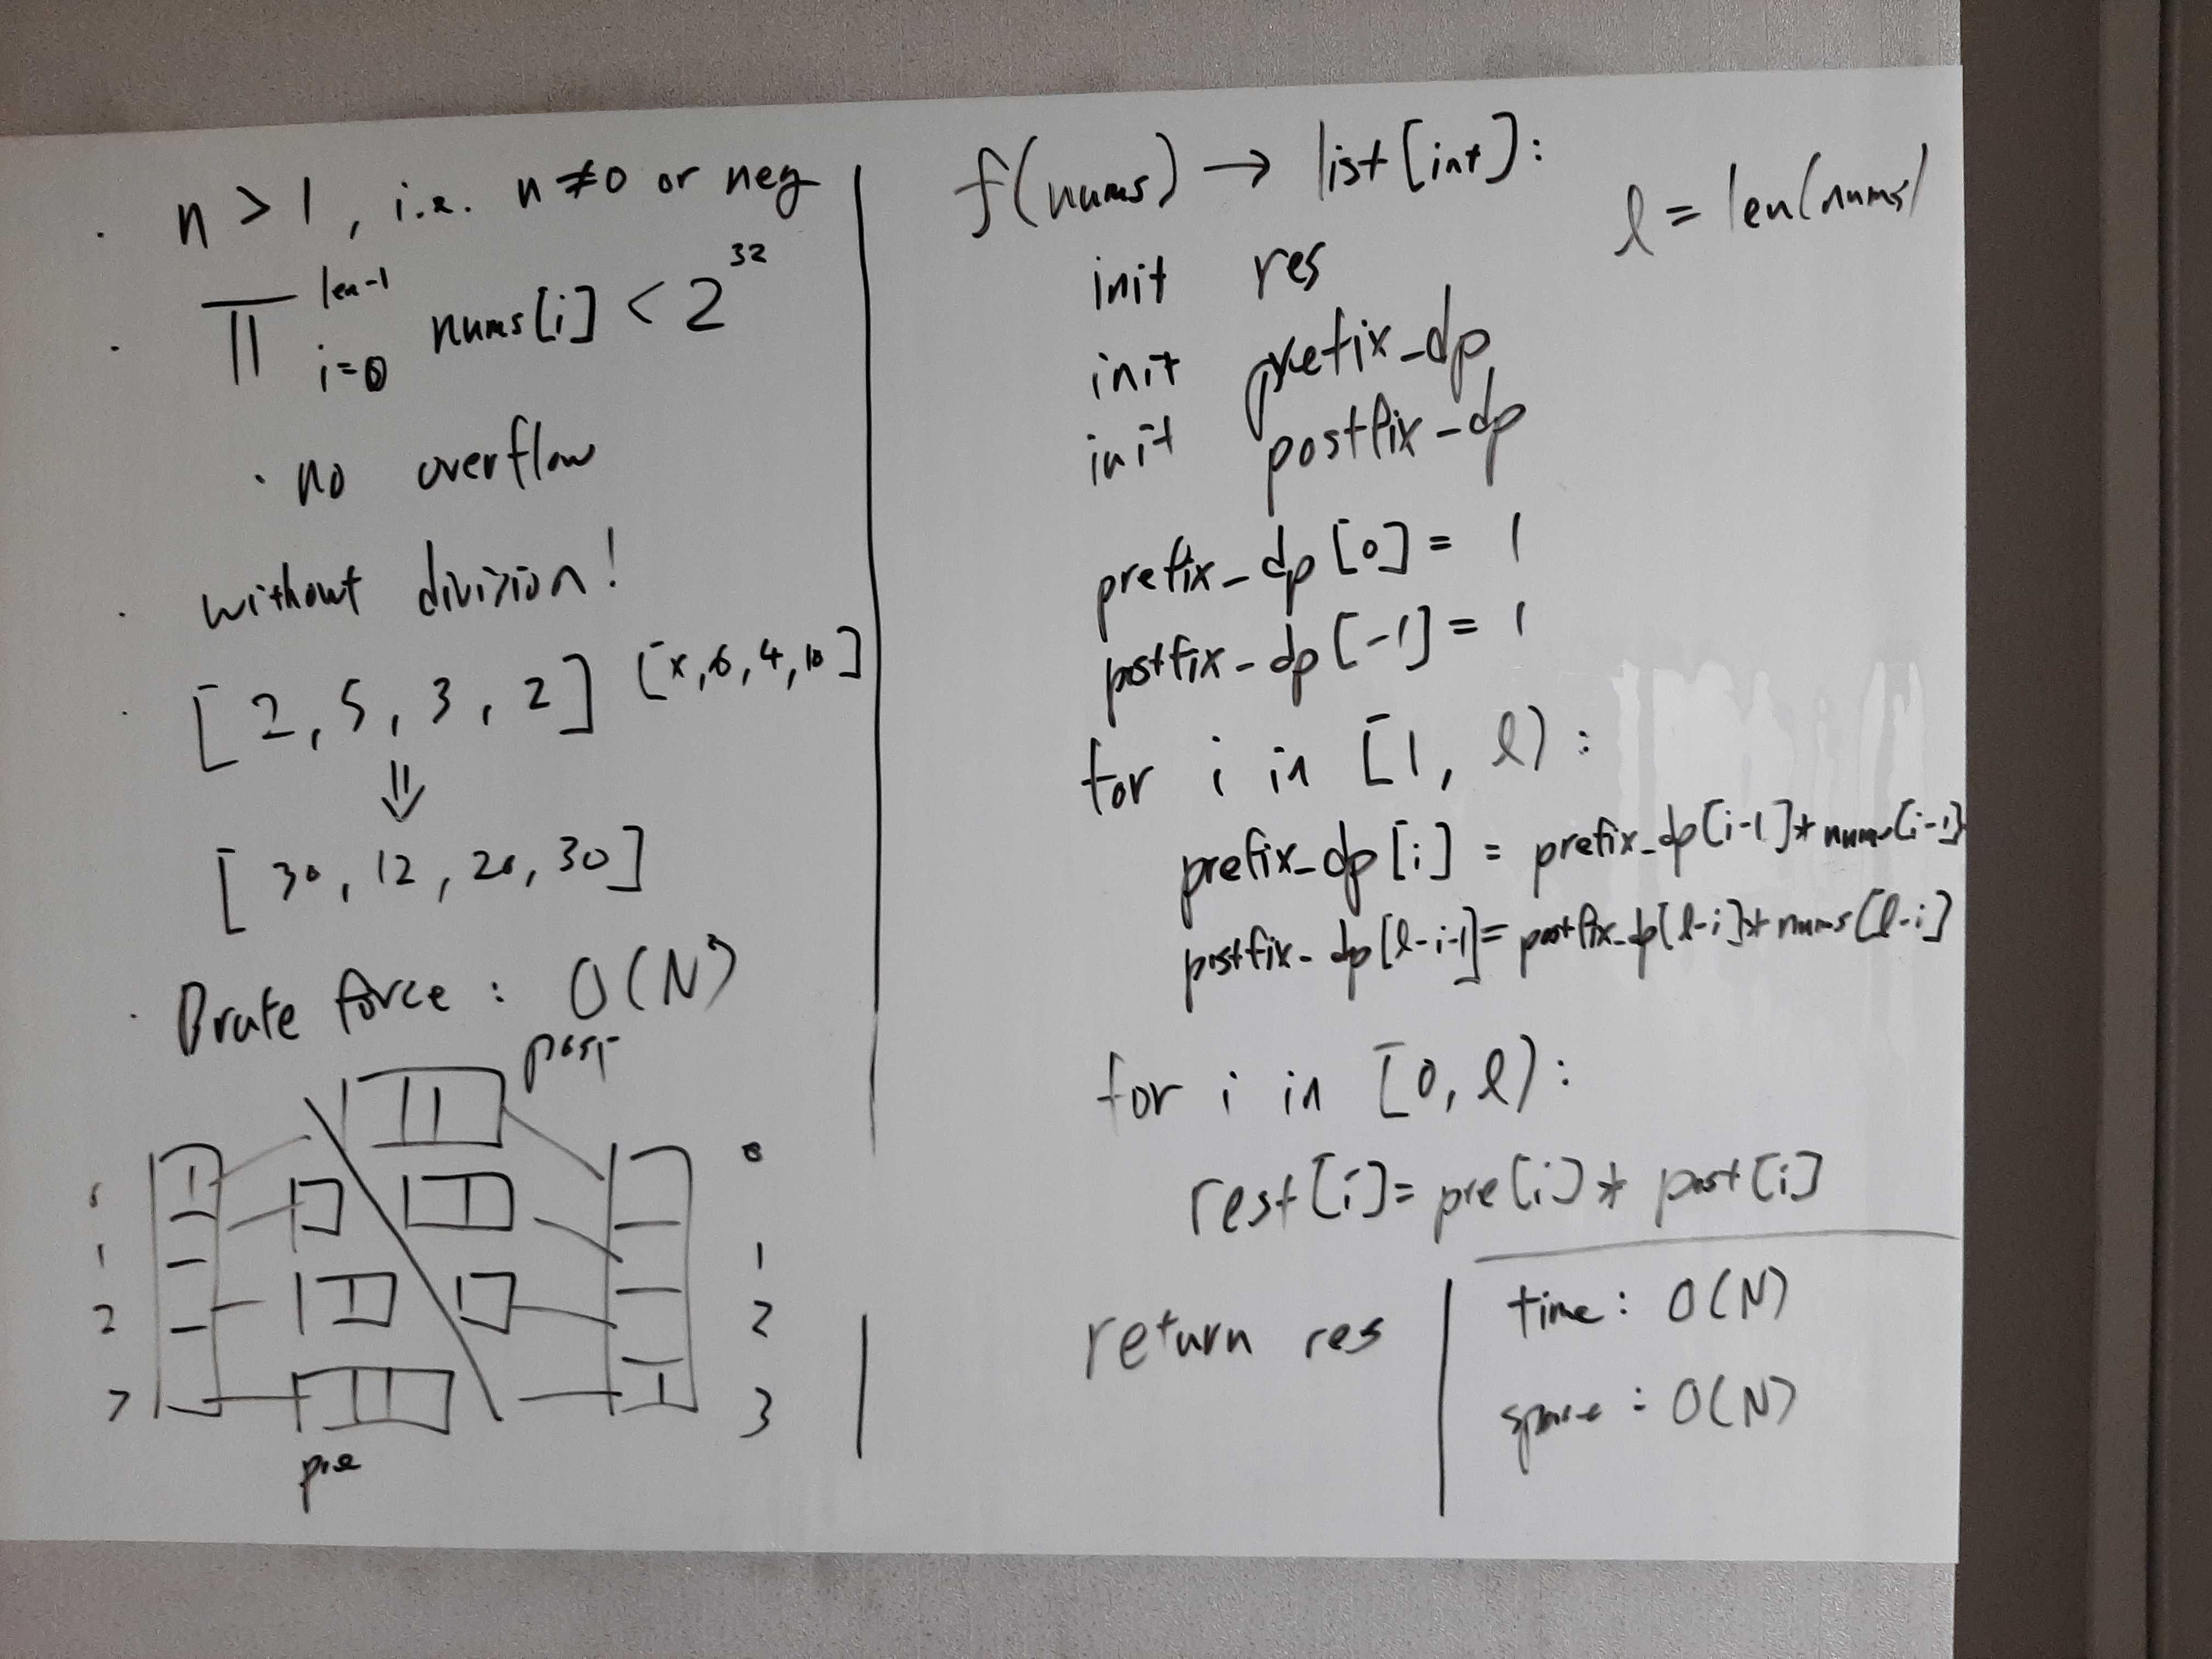 · n > 1, i.e. n ≠ 0 or neg
· ∏ len-1 i=0 nums[i] < 2^32
· no overflow
· without division!
· [2, 5, 3, 2] [x, 6, 4, 10]
⇓
[30, 12, 20, 30]
· Brute force: O(N²)
post
0
1
2
3
0
1
2
3
pre
f(nums) → list[int]:
l = len(nums)
init res
init prefix_dp
init postfix_dp
prefix_dp[0] = 1
postfix_dp[-1] = 1
for i in [1, l):
prefix_dp[i] = prefix_dp[i-1]*nums[i-1]
postfix_dp[l-i-1] = postfix_dp[l-i]*nums[l-i]
for i in [0, l):
rest[i] = pre[i] * post[i]
return res
time: O(N)
space: O(N)